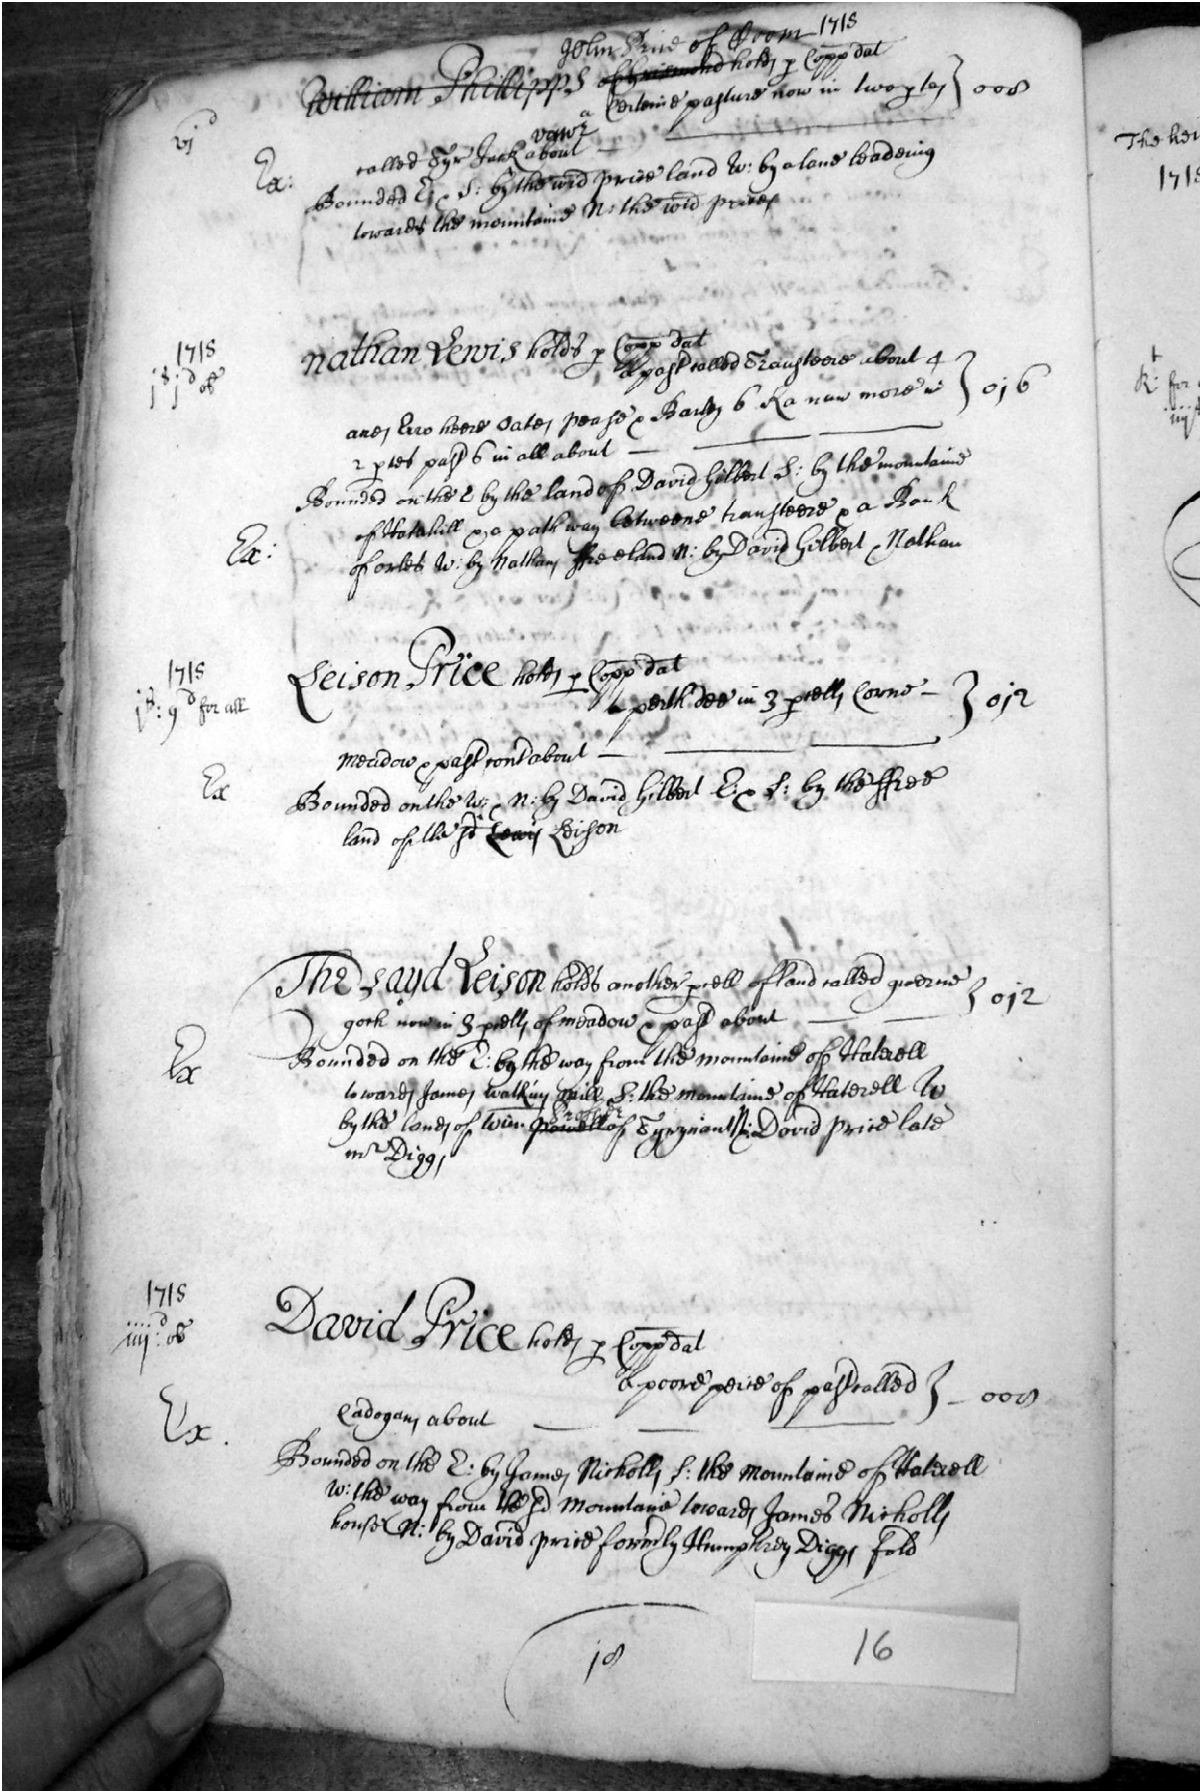 John Price of Coom 1718
William Phillipps of holds p Copp dat
vj d a Certeine pasture now in two ptes } 008
vawr
called Tyr Jack about
Ex: Bounded E & S: by the wid Price land W: by a lane leadeing
towards the mountaine N: the wid Prices
1718
js jd ob
Nathan Lewis holds p Copp dat
a past called Transteere about 4
acres Erro heere Oates pease & Barly 6 more in } 0j6
2 ptes past 6 in all about
Bounded on the E by the land of David Gilbert S: by the mountaine
of Hatahill & a path way betweene transteere & a Bank
Ex:
of orles W: by Nathans ffreeland N: by David Gilbert & Nathan
1718
js: 9d for all
Leison Price holds p Copp dat
perth dee in 3 pcells Corne } 0j2
meadow & past cont about
Ex
Bounded on the W: & N: by David Gilbert E: & S: by the ffree
land of the sd Lewis Leison
The sayd Leison holds another pcell of land called gwerne
goch now in 3 pcells of meadow & past about } 0j2
Ex
Bounded on the E: by the way from the mountaine of Haterell
towards James Watkins mill S: the mountaine of Haterell W
Prosser
by the lands of Wm Powell of N: David Price late
mr Diggs
1718
iiij d: ob
David Price holds p Copp dat
a poore peice of past called } 008
Cadogans about
Ex.
Bounded on the E: by James Nicholls S: the mountaine of Haterell
W: the way from the sd mountaine towards James Nicholls
house N: by David Price formerly Humphrey Diggs fold
j8
16
The hei
1718
k: for
iiij